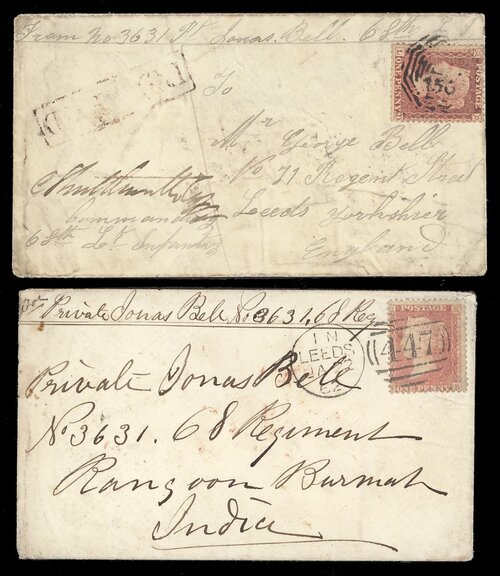 From No 3631 Pt Jonas. Bell. 68th L I
POSTAGE
ONE PENNY
156
INDIA PAID
To
Mr George Bell
No 71 Regent Street
Leeds Yorkshier
England
Commanding
68th Lt Infantry
Private Jonas Bell No 3631. 68 Reg
POSTAGE
ONE PENNY
447
1 N
LEEDS
JA
Private Jonas Bell
No 3631. 68 Regiment
Rangoon Burmah
India